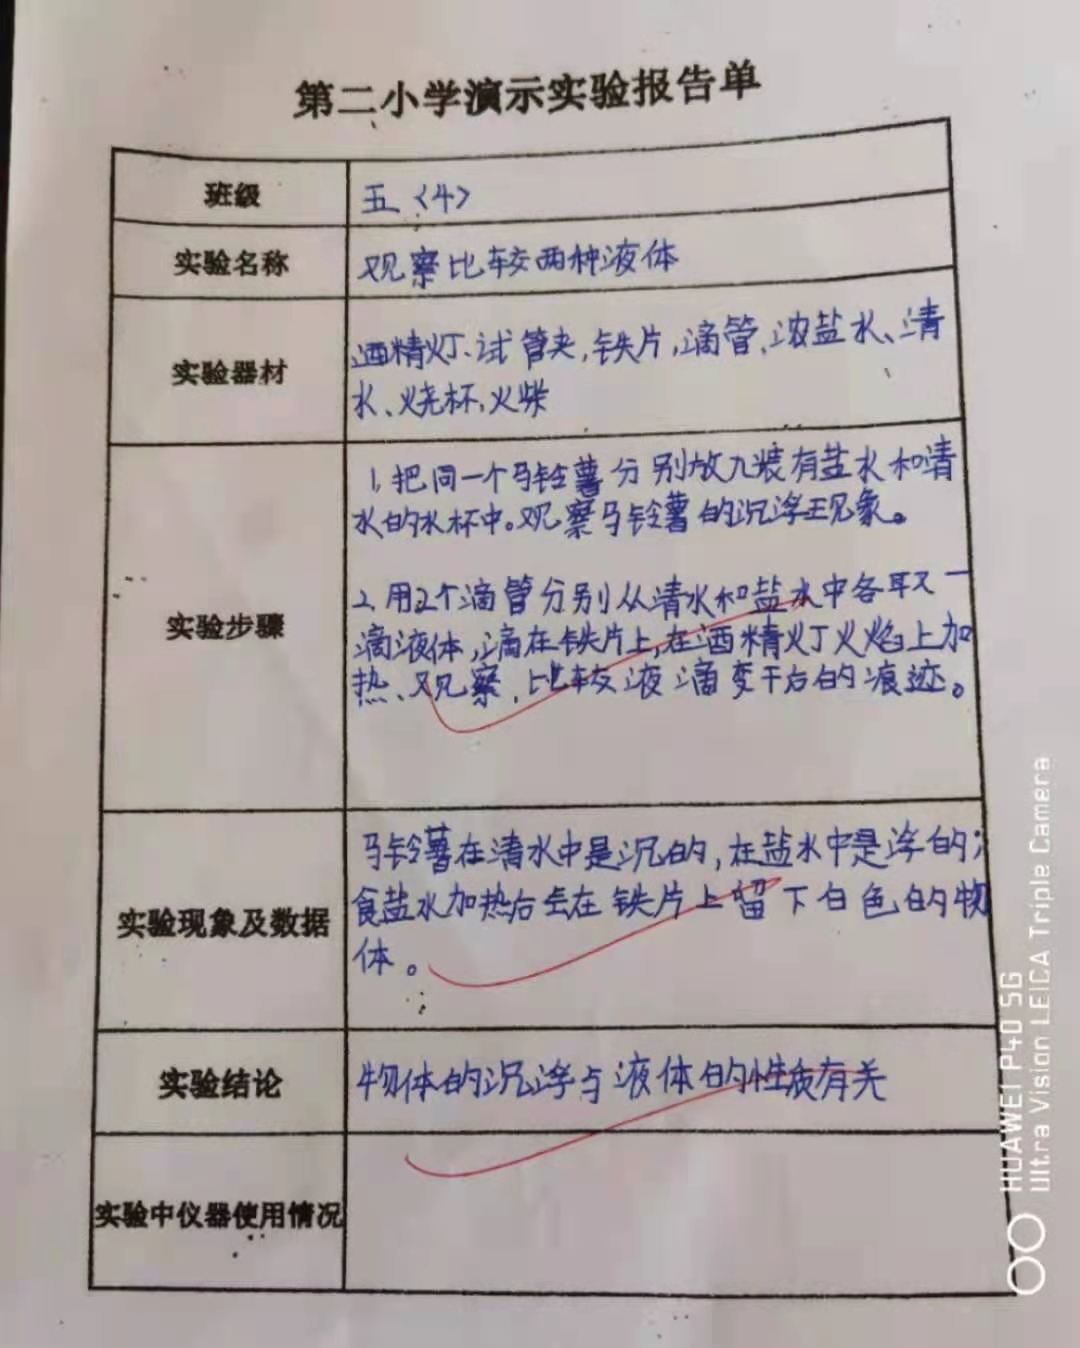 第二小学演示实验报告单
班级
五〈4〉
实验名称
观察比较两种液体
实验器材
酒精灯、试管夹,铁片,滴管、浓盐水、清
水、烧杯,火柴
实验步骤
1,把同一个马铃薯分别放九装有盐水和清
水的水杯中。观察马铃薯的沉浮现象。
2、用2个滴管分别从清水和盐水中各取一
滴液体,滴在铁片上,在酒精灯火焰上加
热、观察,比较液滴变干后的痕迹。
实验现象及数据
马铃薯在清水中是沉的,在盐水中是浮的;
食盐水加热后会在铁片上留下白色的物
体。
实验结论
物体的沉浮与液体的性质有关
实验中仪器使用情况
HUAWEI P40 5G
Ultra Vision LEICA Triple Camera